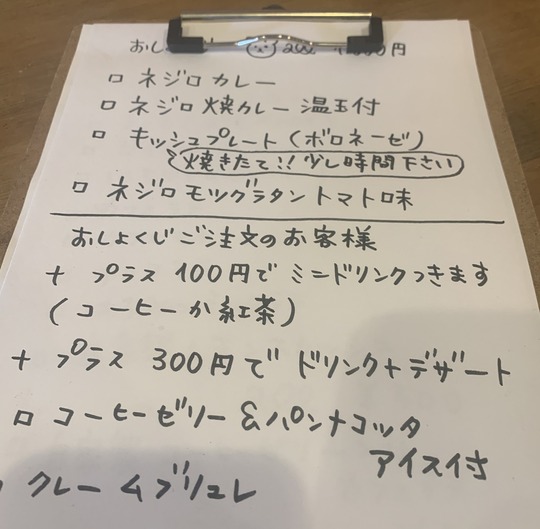 おしょ
円
□ ネジロ カレー
□ ネジロ 焼カレー 温玉付
□ キッシュプレート (ボロネーゼ)
焼きたて!! 少し時間下さい
□ ネジロ モツグラタン トマト味
おしょくじご注文のお客様
+ プラス 100円で ミニドリンクつきます
(コーヒーか紅茶)
+ プラス 300円で ドリンク+デザート
□ コーヒーゼリー&パンナコッタ
アイス付
クレームブリュレ